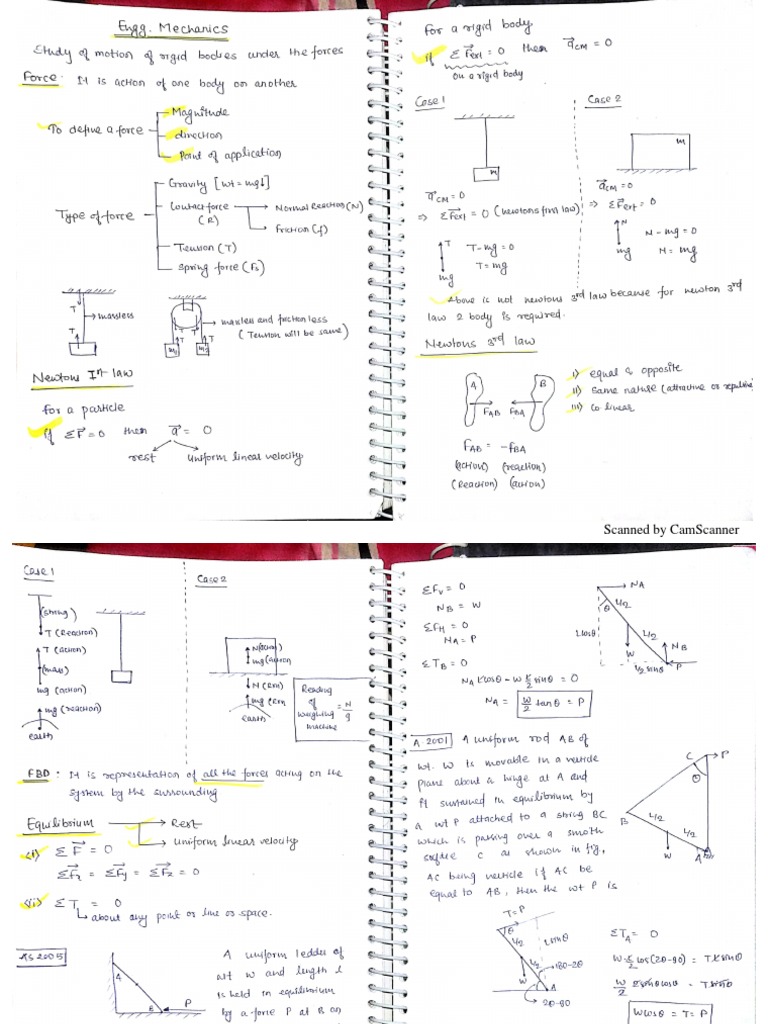 Engg. Mechanics
Study of motion of rigid bodies under the forces
Force: It is action of one body on another
To define a force
Magnitude
direction
Point of application
Type of force
Gravity [wt = mg↓]
Contact force (R)
Normal Reaction (N)
Friction (f)
Tension (T)
Spring force (Fs)
T
massless
T
T
T
T
T
m1
m2
massless and frictionless
(Tension will be same)
Newtons Ist law
for a particle
if ΣF⃗ = 0 then a⃗ = 0
rest
Uniform linear velocity
For a rigid body
if ΣF⃗ext = 0 then a⃗CM = 0
on a rigid body
Case 1
Case 2
m
m
a⃗CM = 0
⇒ ΣF⃗ext = 0 (newtons first law)
T
mg
T-mg = 0
T = mg
a⃗CM = 0
⇒ ΣF⃗ext = 0
N
mg
N - mg = 0
N = mg
Above is not newtons 3rd law because for newton 3rd
law 2 body is required.
Newtons 3rd law
A
B
FAB
FBA
i) equal & opposite
ii) same nature (attractive or repulsive)
iii) Co linear
FAB = -FBA
(action) (reaction)
(Reaction) (action)
Scanned by CamScanner
Case 1
(string)
T (Reaction)
T (action)
(mass)
mg (action)
mg (reaction)
earth
Case 2
N (action)
mg (action
N (Rxn)
mg (Rxn
earth
Reading
of
weighing
machine
= N/g
FBD: It is representation of all the forces acting on the
system by the surrounding
Equilibrium
Rest
Uniform linear velocity
(i) ΣF⃗ = 0
ΣF⃗x = ΣF⃗y = ΣF⃗z = 0
(ii) ΣT = 0
about any point or line or space.
A
B
P
A uniform ladder of
wt w and length l
is held in equilibrium
by a force P at B on
ΣFv = 0
NB = W
ΣFH = 0
NA = P
ΣTB = 0
NA
θ
L/2
L/2
Lcosθ
W
NB
P
L/2 sinθ
NA = W/2 tanθ = P
A 2001
A uniform rod AB of
wt. W is movable in a verticle
plane about a hinge at A and
is sustained in equilibrium by
a wt P attached to a string BC
which is passing over a smoth
C as shown in fig,
AC being verticle if AC be
equal to AB, then the wt P is
C
P
θ
B
L/2
L/2
W
A
T=P
θ
L/2
L/2
W
180-2θ
A
2θ-90
ΣTA = 0
Wcosθ = T = P